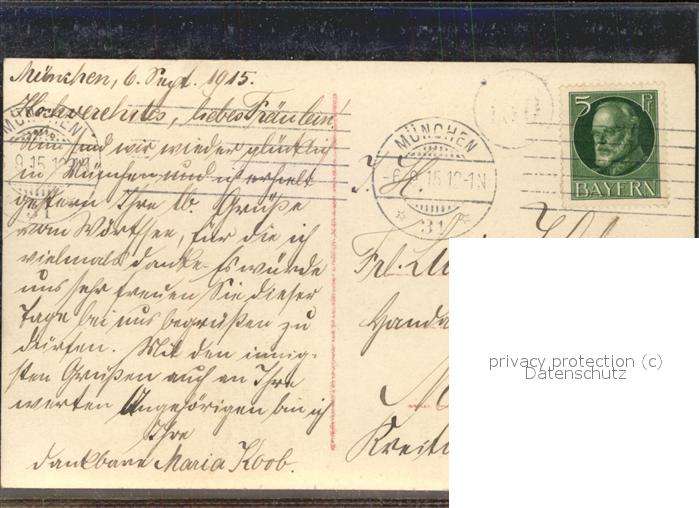 München, 6. Sept. 1915.
Hochverehrtes, liebes Fräulein!
Nun sind wir wieder glücklich
in München und erhielt
gestern Ihre lb. Grüße
vom Wörthsee, für die ich
vielmals danke. Es würde
uns sehr freuen Sie dieser
Tage bei uns begrüßen zu
dürfen. Mit den innig-
sten Grüßen auch an Ihre
werten Angehörigen bin ich
Ihre
dankbare Maria Koob.
MÜNCHEN
9.15.12
31
MÜNCHEN
-6.9.15.12-1N
* 31
5 Pf
BAYERN
Frl.
privacy protection (c)
Datenschutz